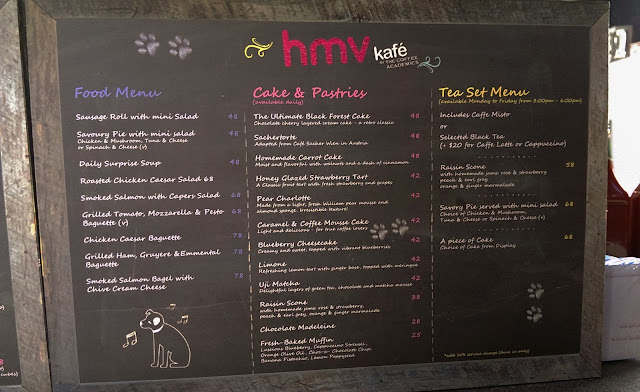 hmv kafé
BY THE COFFEE
ACADEMICS
Food Menu
Sausage Roll with mini Salad 48
Savoury Pie with mini salad 68
Chicken & Mushroom, Tuna & Cheese
or Spinach & Cheese (v)
Daily Surprise Soup 48
Roasted Chicken Caesar Salad 68
Smoked Salmon with Capers Salad 68
Grilled Tomato, Mozzarella & Pesto 68
Baguette (v)
Chicken Caesar Baguette 78
Grilled Ham, Gruyere & Emmental 78
Baguette
Smoked Salmon Bagel with 78
Chive Cream Cheese
Cake & Pastries
(available daily)
The Ultimate Black Forest Cake 48
Chocolate cherry layered cream cake - a retro classic
Sachertorte 48
Adapted from Café Sacher Wien in Austria
Homemade Carrot Cake 48
Moist and flavorful with walnuts and a dash of cinnamon
Honey Glazed Strawberry Tart 42
A Classic fruit tart with fresh strawberry and grapes
Pear Charlotte 42
Made from a light, fresh William pear mousse and
almond sponge. Irresistible texture!
Caramel & Coffee Mousse Cake 42
Light and delicious - for true coffee lovers
Blueberry Cheesecake 42
Creamy and sweet, topped with vibrant blueberries
Limone 42
Refreshing lemon tart with ginger base, topped with meringue
Uji Matcha 42
Delightful layers of green tea, chocolate and matcha mousse
Raisin Scone 38
with homemade jams: rose & strawberry,
peach & earl grey, orange & ginger marmalade
Chocolate Madeleine 28
Fresh-Baked Muffin 25
Luscious Blueberry, Cappuccino Streusel,
Orange Olive Oil, Choco- Chocolate Chip,
Banana Pistachio, Lemon Poppyseed
Tea Set Menu
(available Monday to Friday from 3:00pm - 6:00pm)
Includes Caffe Misto
or
Selected Black Tea
(+ $20 for Caffe Latte or Cappuccino)
Raisin Scone 58
with homemade jams: rose & strawberry
peach & earl grey
orange & ginger marmalade
Savory Pie served with mini salad 68
Choice of Chicken & Mushroom,
Tuna & Cheese or Spinach & Cheese (v)
A piece of Cake 68
Choice of Cake from Display
*add 10% service charge (dine in only)